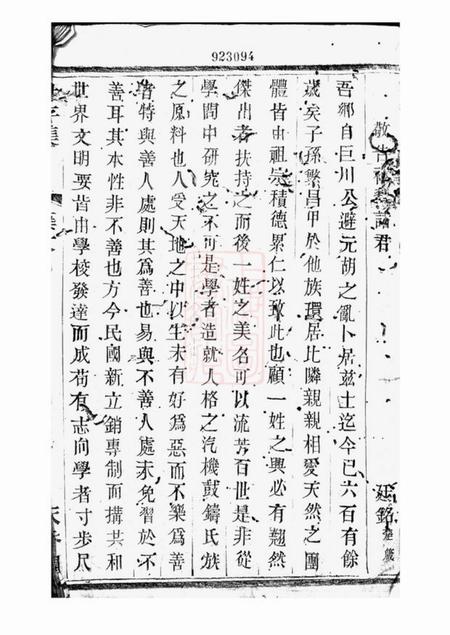 923094
諸君
廷銘
吾鄉自巨川公避元胡之亂卜居兹土迄今已六百有餘
歲矣子孫繁昌甲於他族環居比隣親親相愛天然之團
體皆由祖宗積德累仁以致此也顧一姓之興必有翹然
傑出者扶持之而後一姓之美名可以流芳百世是非從
學問中研究之不可是學者造就人格之汽機鼓鑄氏族
之原料也人受天地之中以生未有好為惡而不樂為善
者特與善人處則其為善也易與不善人處未免習於不
善耳其本性非不善也方今民國新立銷專制而搆共和
世界文明要皆由學校發達而成苟有志向學者寸步尺